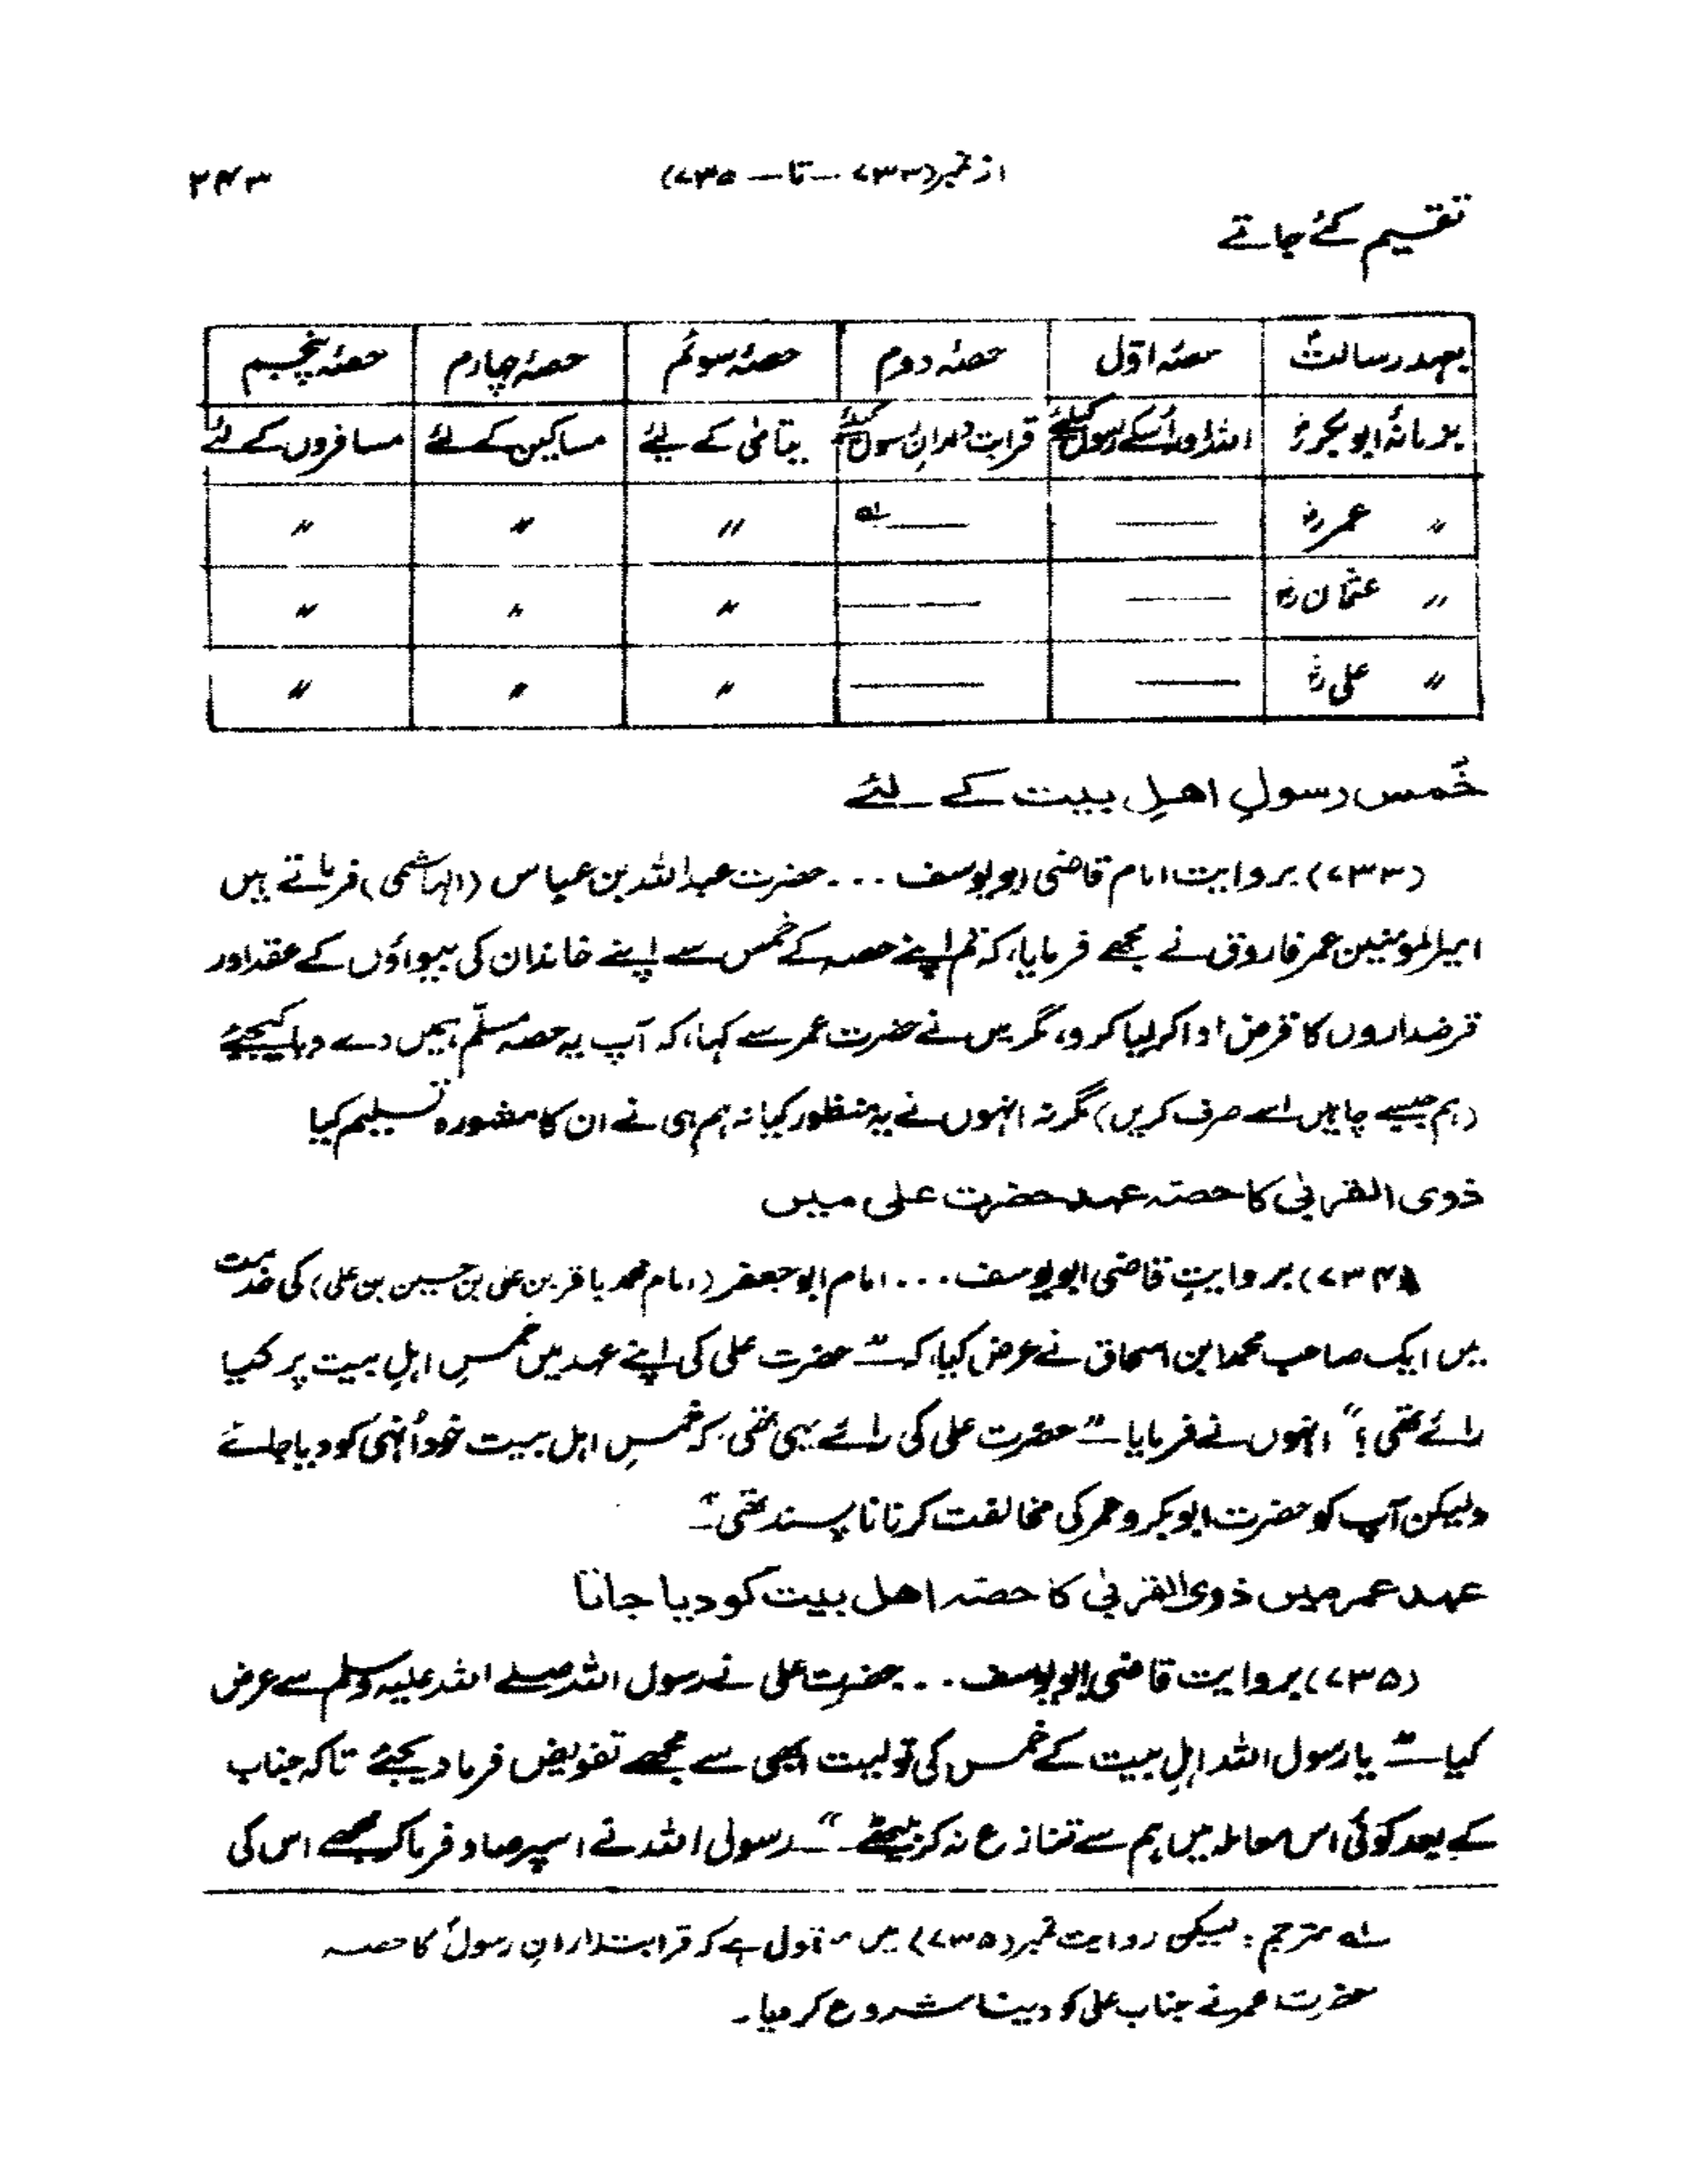 از نمبر (۷۳۳ — تا — ۷۳۵) ۲۴۳
تقسیم کئے جاتے
بعہد رسالتؐ حصۂ اوّل حصۂ دوم حصۂ سوئم حصۂ چہارم حصۂ پنجم
بزمانۂ ابوبکرؓ اللہ اور اُسکے رسولؐ کیلئے قرابتدارانِ رسولؐ کیلئے یتامٰی کے لیے مساکین کے لئے مسافروں کے لئے
〃 عمرؓ —— ——لہ 〃 〃 〃
〃 عثمانؓ —— —— 〃 〃 〃
〃 علیؓ —— —— 〃 〃 〃
خُمس رسولِ اھلِ بیت کے لئے
(۷۳۳) بروایت امام قاضی ابویوسف ... حضرت عبداللہ بن عباس (الہاشمی) فرماتے ہیں
امیرالمومنین عمر فاروق نے مجھے فرمایا، کہ تم اپنے حصہ کے خُمس سے اپنے خاندان کی بیواؤں کے عقد اور
قرضداروں کا قرض ادا کر لیا کرو، مگر میں نے حضرت عمر سے کہا، کہ آپ یہ حصہ مسلّم ہمیں دے دیا کیجیئے
(ہم جیسے چاہیں اسے صرف کریں) مگر نہ انہوں نے یہ منظور کیا نہ ہم ہی نے ان کا مشورہ تسلیم کیا
ذوی القربیٰ کا حصّہ عہد حضرت علی میں
(۷۳۴) بروایتِ قاضی ابویوسف ... امام ابوجعفر (امام محمد باقر بن علی بن حسین بن علی) کی خدمت
میں ایک صاحب محمد ابن اسحاق نے عرض کیا، کہ — “حضرت علی کی اپنے عہد میں خُمسِ اہلِ بیت پر کیا
رائے تھی؟” انہوں نے فرمایا — “حضرت علی کی رائے یہی تھی، کہ خُمسِ اہل بیت خود اُنہی کو دیا جائے
ولیکن آپ کو حضرت ابوبکر و عمر کی مخالفت کرنا نا پسند تھی”—
عہد عمر میں ذوی القربیٰ کا حصّہ اھل بیت کو دیا جانا
(۷۳۵) بروایت قاضی ابویوسف ... حضرت علی نے رسول اللہ صلے اللہ علیہ وسلم سے عرض
کیا — “یا رسول اللہ اہلِ بیت کے خُمس کی تولیت ابھی سے مجھے تفویض فرما دیجئے تاکہ جناب
کے بعد کوئی اس معاملہ میں ہم سے تنازع نہ کر بیٹھے۔” — رسول اللہ نے اسپر صاد فرما کر مجھے اس کی
لہ مترجم: لیکن روایت نمبر (۷۳۵) میں منقول ہے کہ قرابتدارانِ رسولؐ کا حصہ
حضرت عمر نے جناب علی کو دینا شروع کر دیا۔